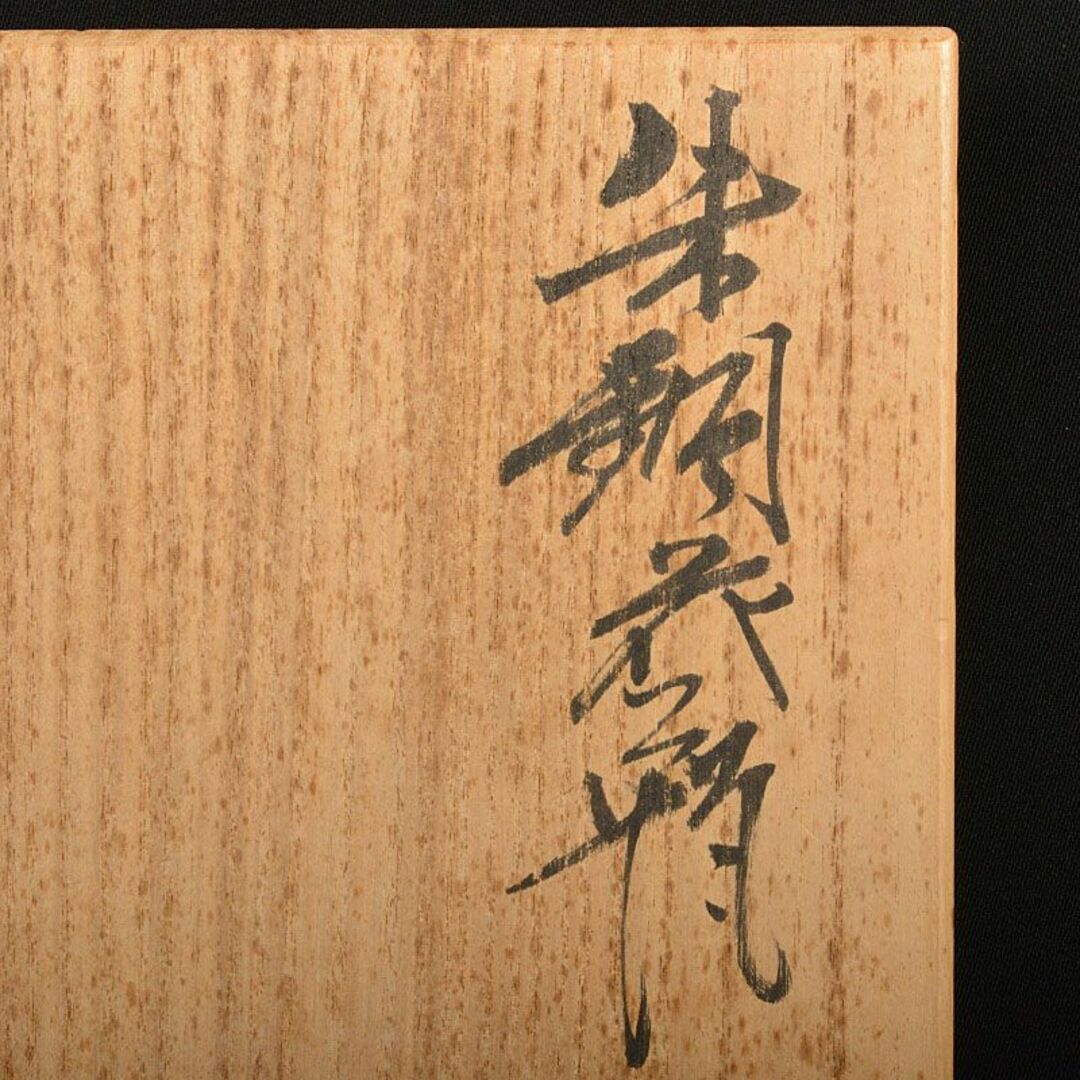 朱銅花瓶